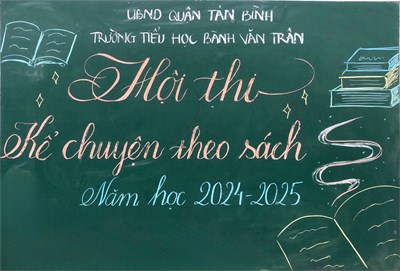 UBND QUẬN TÂN BÌNH
TRƯỜNG TIỂU HỌC BÀNH VĂN TRÂN
Hội thi
Kể chuyện theo sách
Năm học 2024-2025